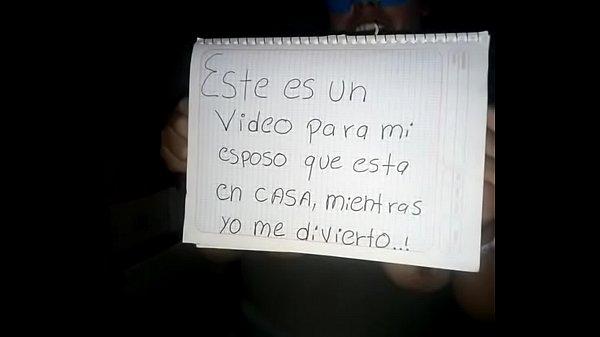 Este es un
Video para mi
esposo que esta
en CASA, mientras
yo me divierto..!